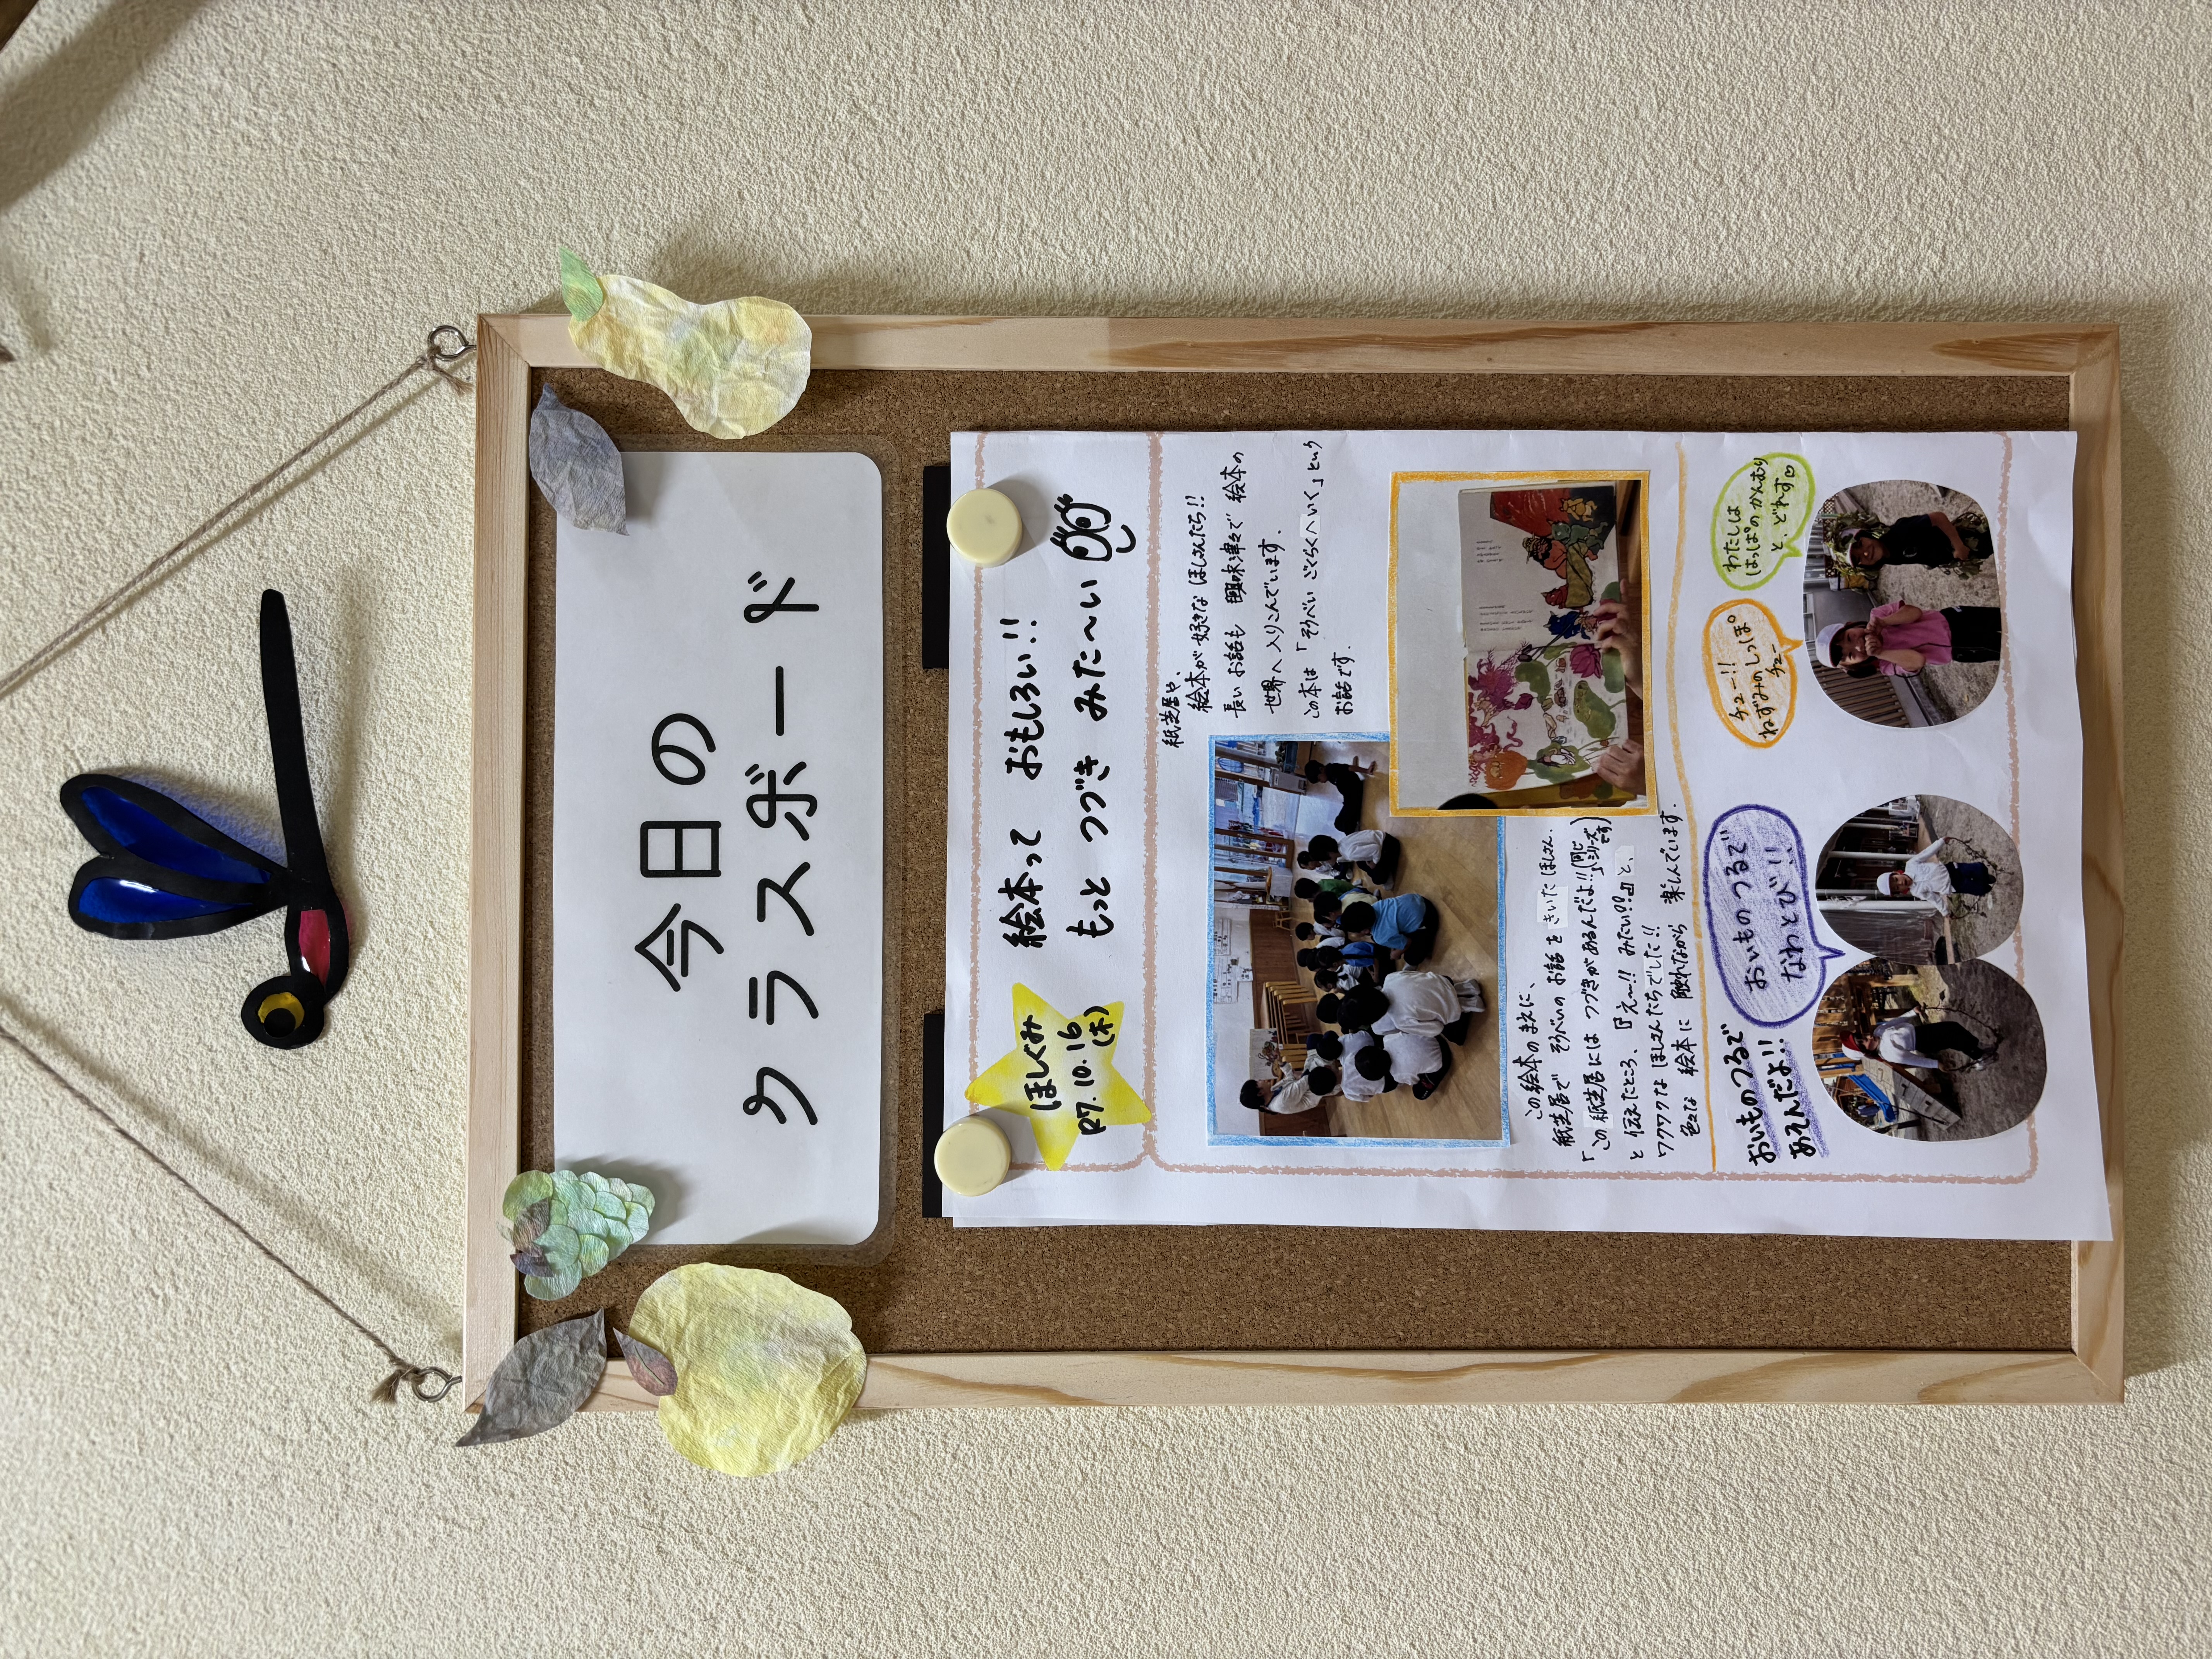 今日の
クラスボード
ほしぐみ
R7.10.16
(木)
絵本って おもしろい!!
もっと つづき みた〜い
紙芝居や、
絵本が好きな ほしさんたち!!
長いお話も 興味津々で 絵本の
世界へ入りこんでいます.
この本は「そうべい ごくらくへいく」という
お話です.
この絵本のまえに、
紙芝居で そうべいのお話を きいた ほしさん.
「この紙芝居には つづきがあるんだよ!!(同じシリーズです)」
と 伝えたところ、『え〜!! みたい!!』と、
ワクワクな ほしさんたちでした!!
色々な 絵本に 触れながら 楽しんでいます.
おいものつるで
あそんだよ!!
おいものつるで
なわとび!!
チュー!!
ねずみのしっぽ
チュー
わたしは
はっぱのかんむり
と、どれす♡